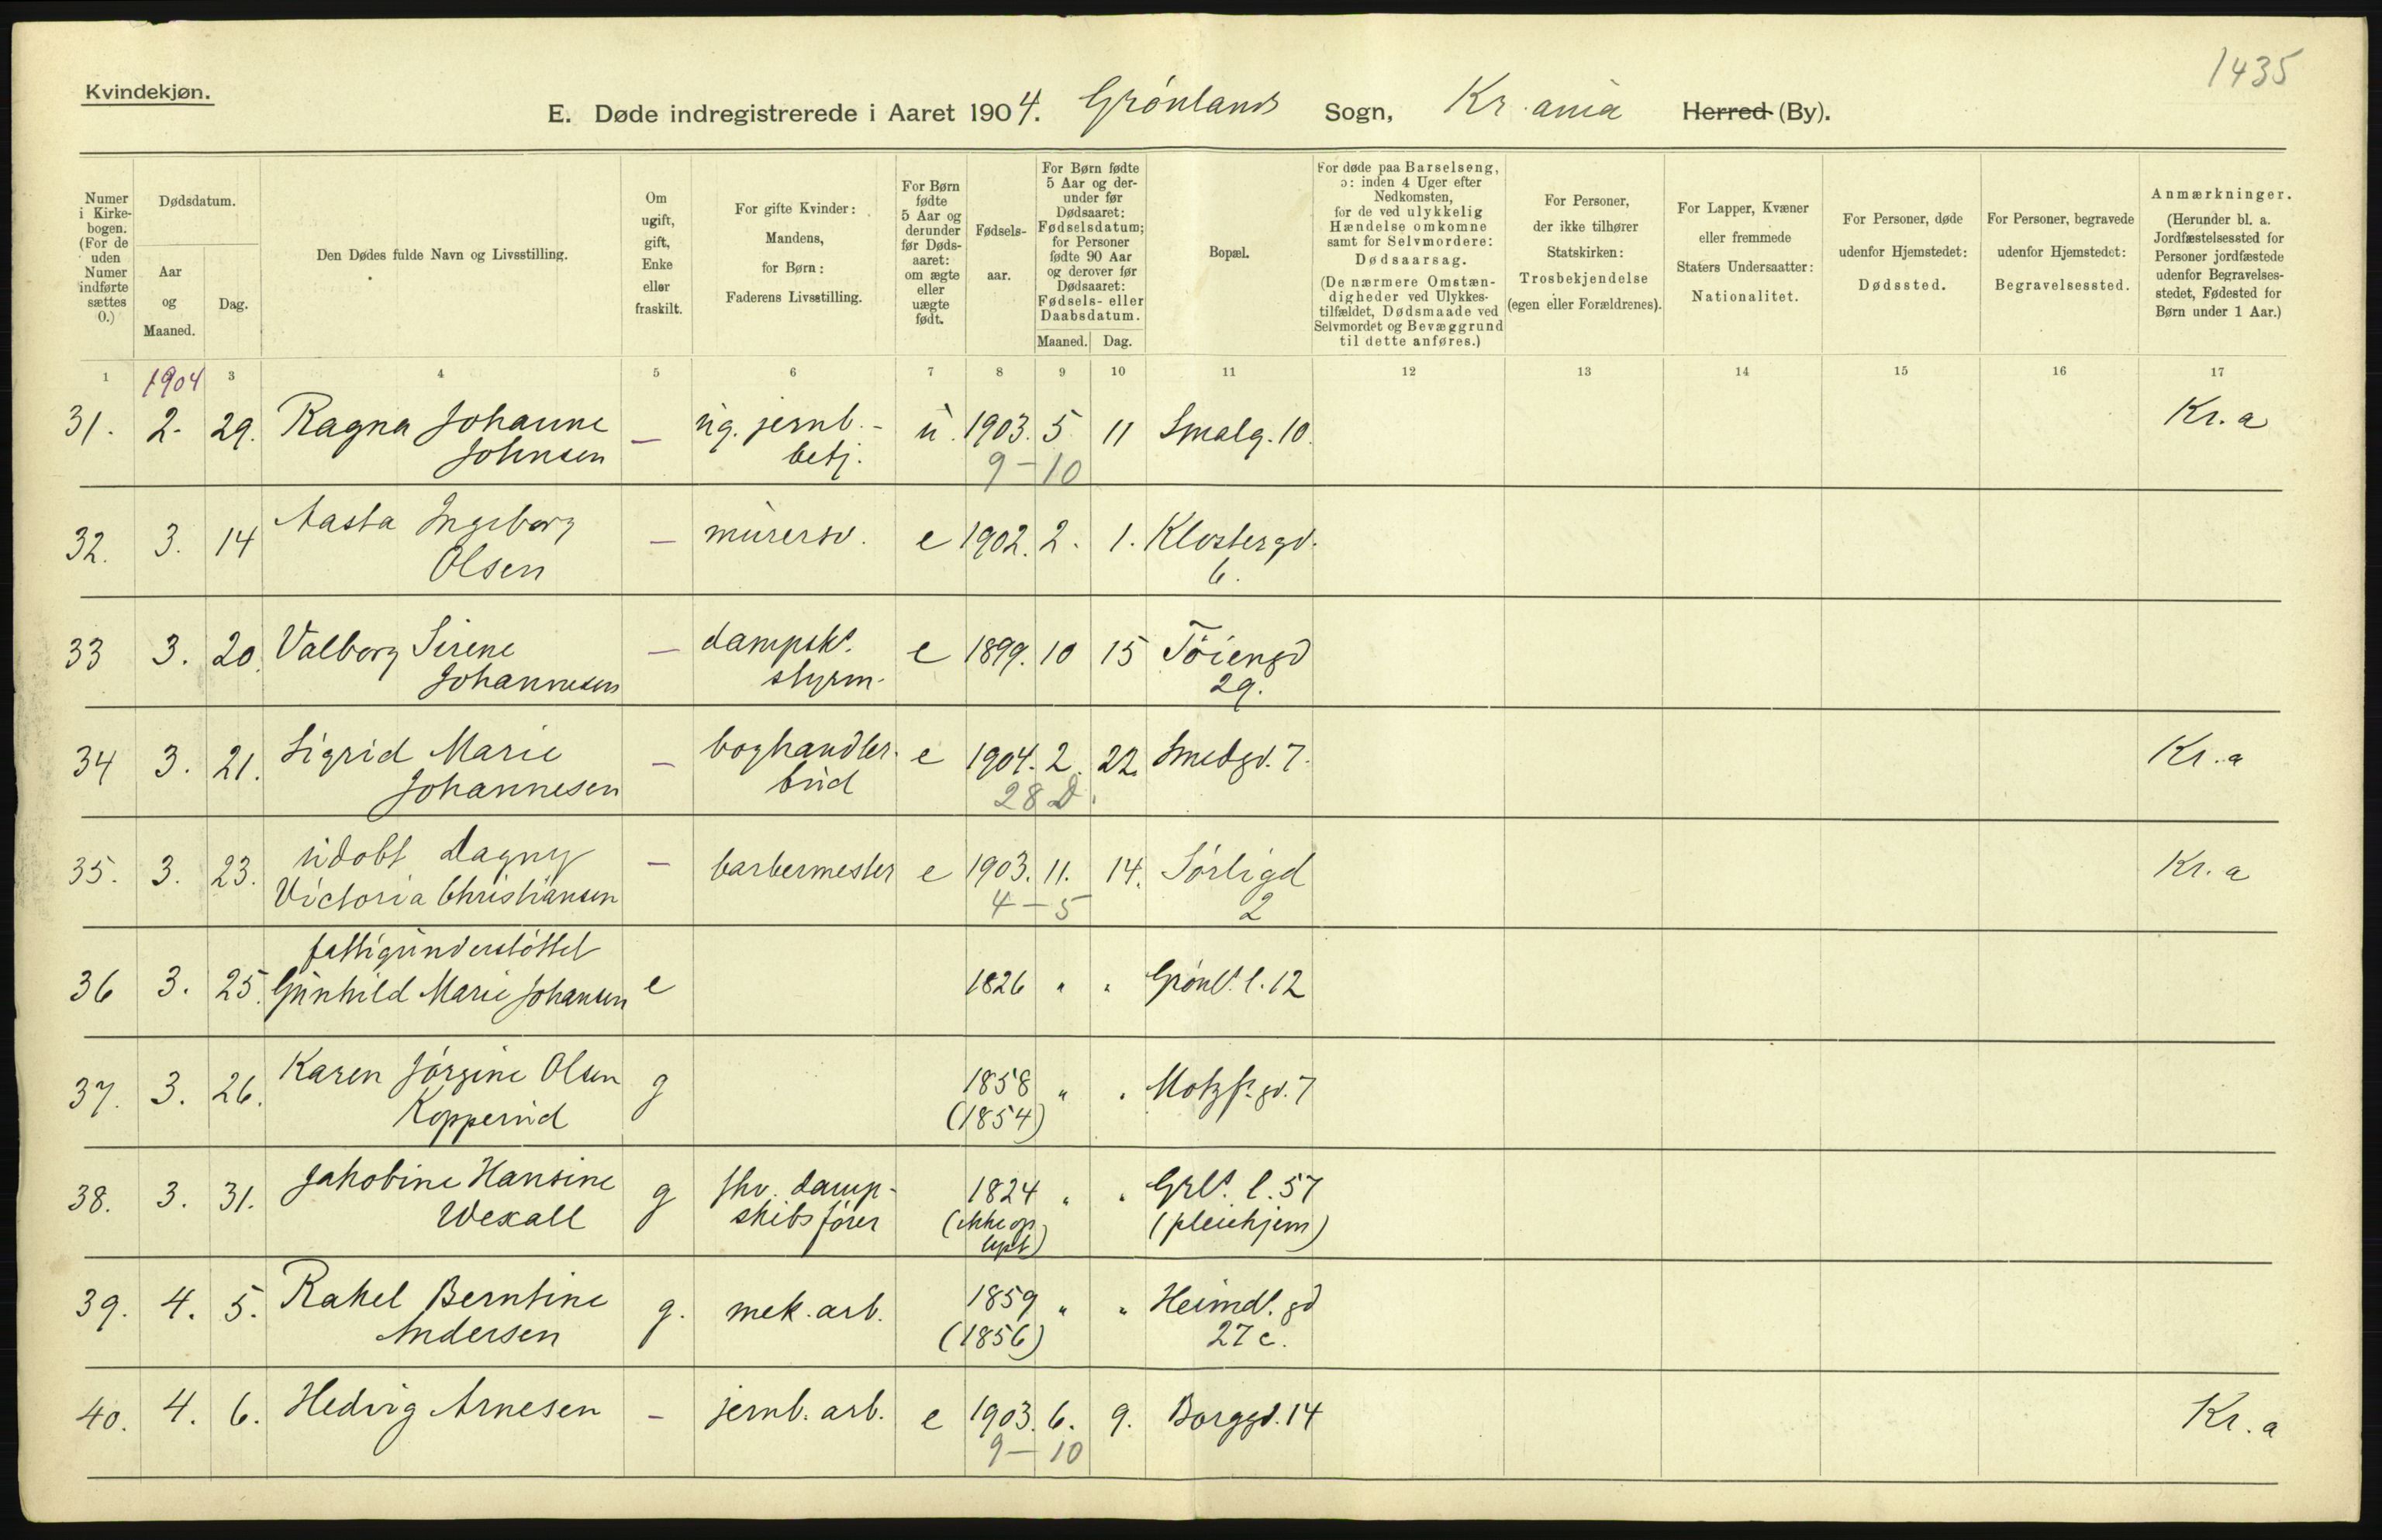 1435
Kvindekjøn.
E. Døde indregistrerede i Aaret 1904. Grönlands Sogn, Kr.ania Herred (By).
Numer i Kirkebogen. (For de uden Numer indførte sættes 0.)
Dødsdatum.
Aar og Maaned.
Dag.
Den Dødes fulde Navn og Livsstilling.
Om ugift, gift, Enke eller fraskilt.
For gifte Kvinder: Mandens, for Børn: Faderens Livsstilling.
For Børn fødte 5 Aar og derunder før Døds-aaret: om ægte eller uægte født.
Fødsels-aar.
For Børn fødte 5 Aar og der-under før Dødsaaret: Fødselsdatum; for Personer fødte 90 Aar og derover før Dødsaaret: Fødsels- eller Daabsdatum.
Maaned. Dag.
Bopæl.
For døde paa Barselseng, ɔ: inden 4 Uger efter Nedkomsten, for de ved ulykkelig Hændelse omkomne samt for Selvmordere: Dødsaarsag. (De nærmere Omstæn-digheder ved Ulykkes-tilfældet, Dødsmaade ved Selvmordet og Bevæggrund til dette anføres.)
For Personer, der ikke tilhører Statskirken: Trosbekjendelse (egen eller Forældrenes).
For Lapper, Kvæner eller fremmede Staters Undersaatter: Nationalitet.
For Personer, døde udenfor Hjemstedet: Dødssted.
For Personer, begravede udenfor Hjemstedet: Begravelsessted.
Anmærkninger. (Herunder bl. a. Jordfæstelsessted for Personer jordfæstede udenfor Begravelses-stedet, Fødested for Børn under 1 Aar.)
1 1904 3 4 5 6 7 8 9 10 11 12 13 14 15 16 17
31. 2. 29. Ragna Johanne — ug. jernb.- u. 1903. 5 11 Smalg. 10. Kr. a
Johnsen betj. 9-10
32. 3. 14 Aasta Ingeborg — murersv. e 1902. 2. 1. Klostergd.
Olsen 6.
33 3. 20. Valborg Sirene — dampsk. e 1899. 10 15 Töiengd
Johannesen styrm. 29.
34 3. 21. Sigrid Marie — boghandler- e 1904. 2. 22. Smedgd. 7. Kr. a
Johannesen bud 28 D.
35. 3. 23. udobt Dagny — barbermester e 1903. 11. 14. Sörligd Kr. a
Victoria Christiansen 4-5 2
36 3. 25. fattigunderstöttet
Gunhild Marie Johansen e 1826 " " Grönl. l. 12
37. 3. 26. Karen Jörgine Olsen g 1858 " " Motzf. gd. 7
Kopperud (1854)
38. 3. 31. Jakobine Hansine g fhv. damp- 1824 " " Grl. l. 57
Wexall skibsförer (ikke op (pleiehjem)
lyst)
39. 4. 5. Rakel Berntine g. mek. arb. 1859 " " Heimdl. gd
Andersen (1856) 27 c.
40. 4. 6. Hedvig Arnesen — jernb. arb. e 1903. 6. 9. Borggd. 14 Kr. a
9-10